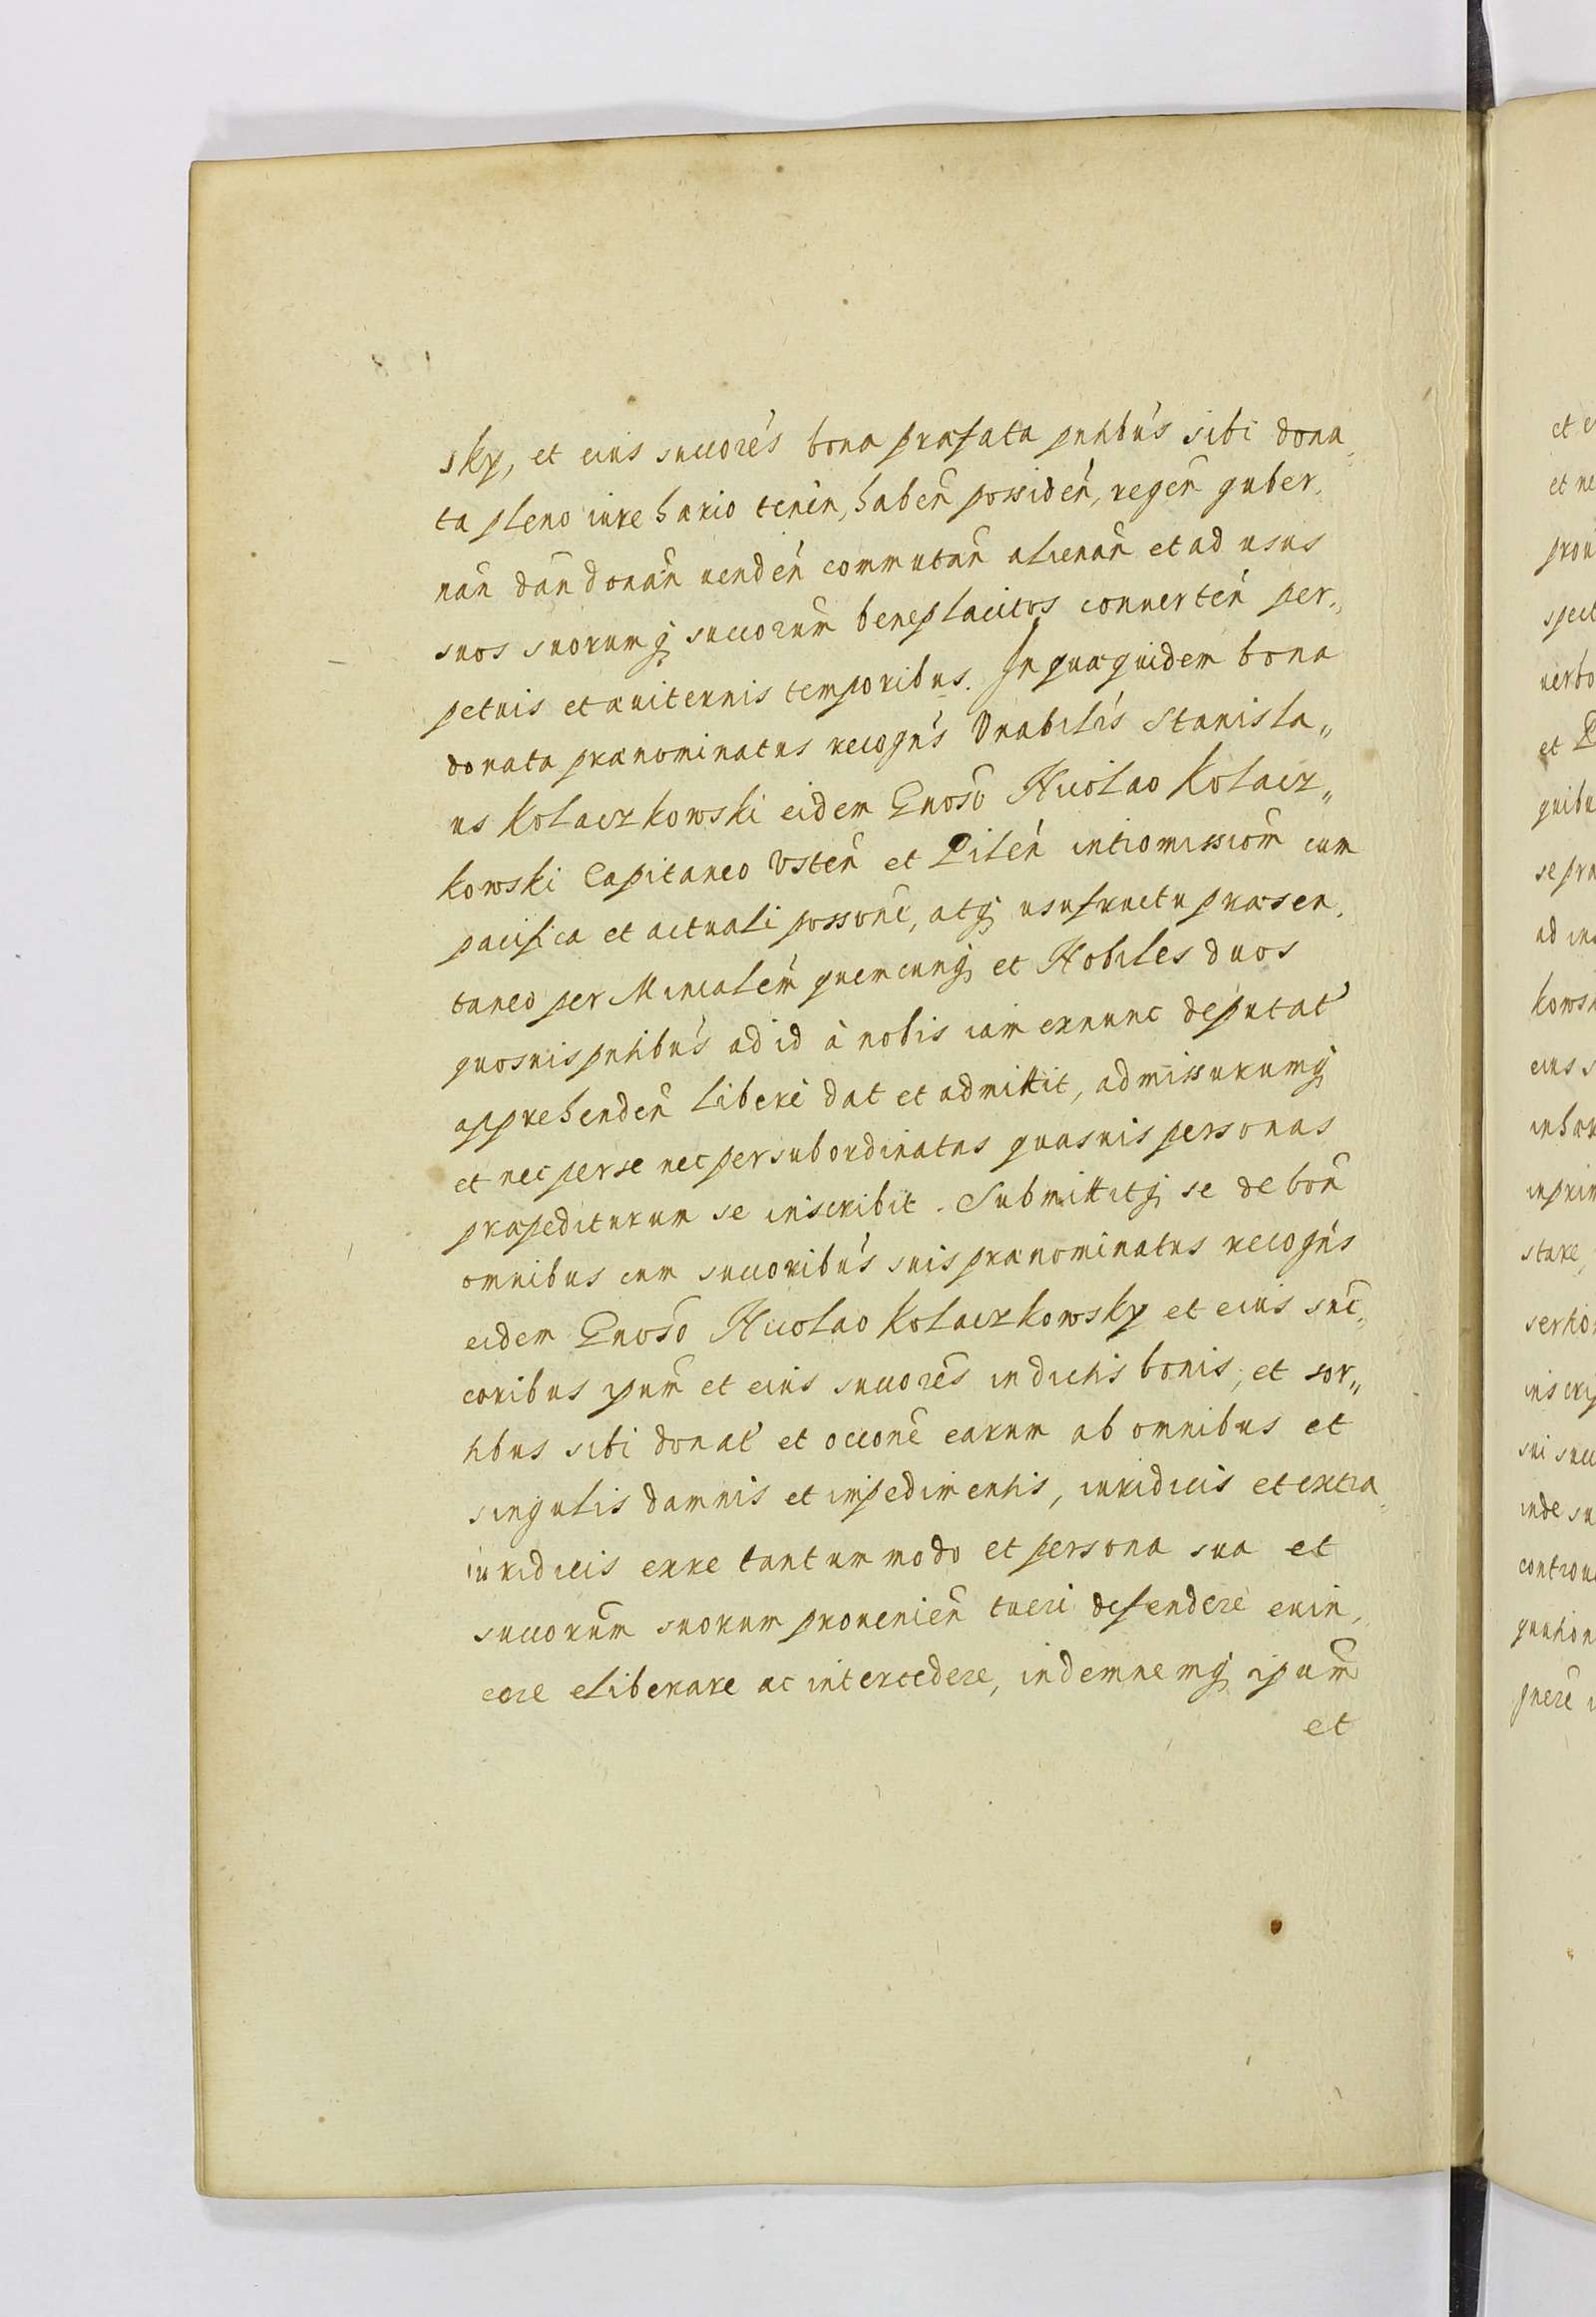 sky, et eius succores bona præfata pntibus sibi dona„
ta pleno iure hærio tenen, haben possiden, regen guber„
nan dan donan uenden commutan alienan et ad usus
suos suorumq succorum beneplacitos conuerten per„
petuis et æuiternis temporibus. In quæ quidem bona
donata prænominatus recogns Vnabilis Stanisla„
us Kolaczkowski eidem Gnoso Nicolao Kolacz„
kowski Capitaneo Vsten et Pilen intromissiom cum
pacifica et actuali possone, atq usufructu præsen„
taneo per Minialem quemcunq et Nobiles duos
quosuis pntibus ad id à nobis iam exnunc deputat
apprehenden liberè dat et admittit, admissurumq
et nec per se nec per subordinatas quasuis personas
præpediturum se inscribit. Submittitq se de bon
omnibus cum succoribus suis prænominatus recogns
eidem Gnoso Nicolao Kolaczkowsky et eius suc„
coribus ipsum et eius succores in dictis bonis, et sor„
tibus sibi donat et occone earum ab omnibus et
singulis damnis et impedimentis, iuridicis et extra„
iuridicis exre tantummodo et persona sua et
succorum suorum prouenien tueri defendere euin„
cere eliberare ac intercedere, indemnemq ipsum
et